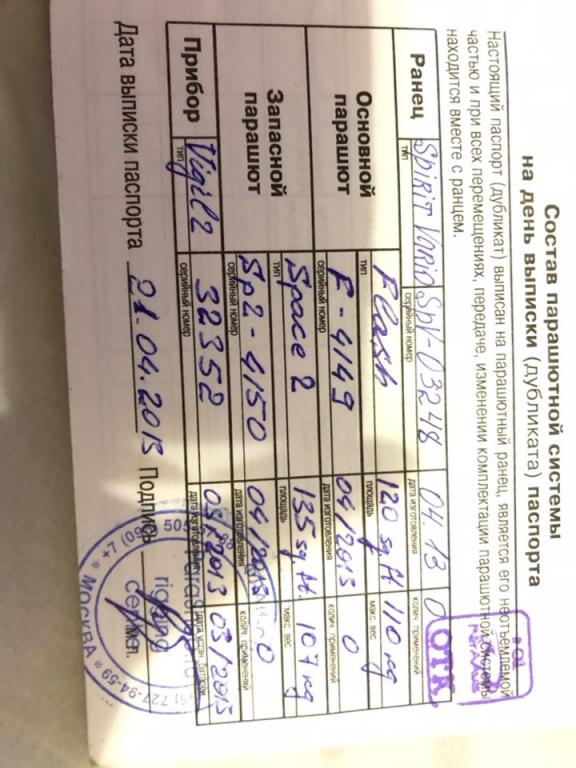 Состав парашютной системы
на день выписки (дубликата) паспорта
Настоящий паспорт (дубликат) выписан на парашютный ранец, является его неотъемлемой
частью и при всех перемещениях, передаче, изменении комплектации парашютной системы
находится вместе с ранцем.
ОТК
Ранец Spirit Vario SpV-03248 04.13 0
тип серийный номер дата изготовления колич. применений
Основной парашют
Flash 120 sq ft 110 kg
тип площадь макс. вес
F-4149 04/2013 0
серийный номер дата изготовления колич. применений
Запасной парашют
Space 2 135 sq. ft. 107 kg
тип площадь макс. вес
Sp2-4150 04/2013 0
серийный номер дата изготовления колич. применений
Прибор Vigil 2 32352 03/2013 03/2013
тип серийный номер дата изготовления дата устан. батареи
Дата выписки паспорта 21.04.2013 Подпись
rigging
МОСКВА
727-94-59